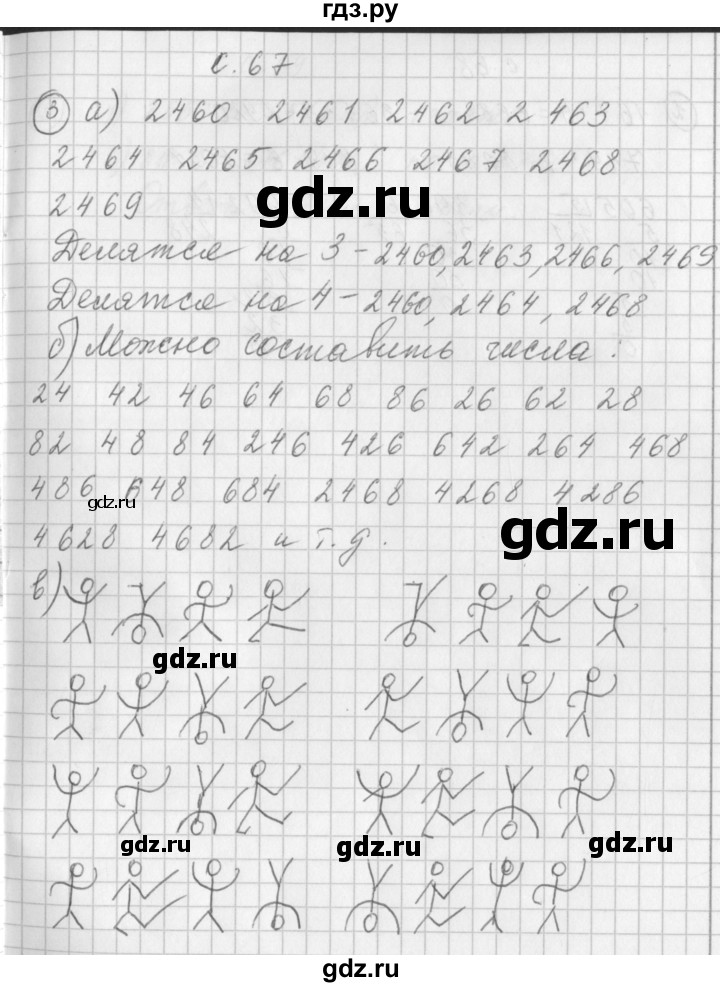 гдз.ру
с. 67
③ а) 2460 2461 2462 2463
2464 2465 2466 2467 2468
gdz.ru
2469
Делятся на 3 - 2460, 2463, 2466, 2469
Делятся на 4 - 2460, 2464, 2468
б) Можно составить числа:
24 42 46 64 68 86 26 62 28
82 48 84 246 426 642 264 468
486 648 684 2468 4268 4286
gdz.ru
gdz.ru
4628 4682 и т.д.
в)
gdz.ru
gdz.ru
gdz.ru
gdz.ru
gdz.ru